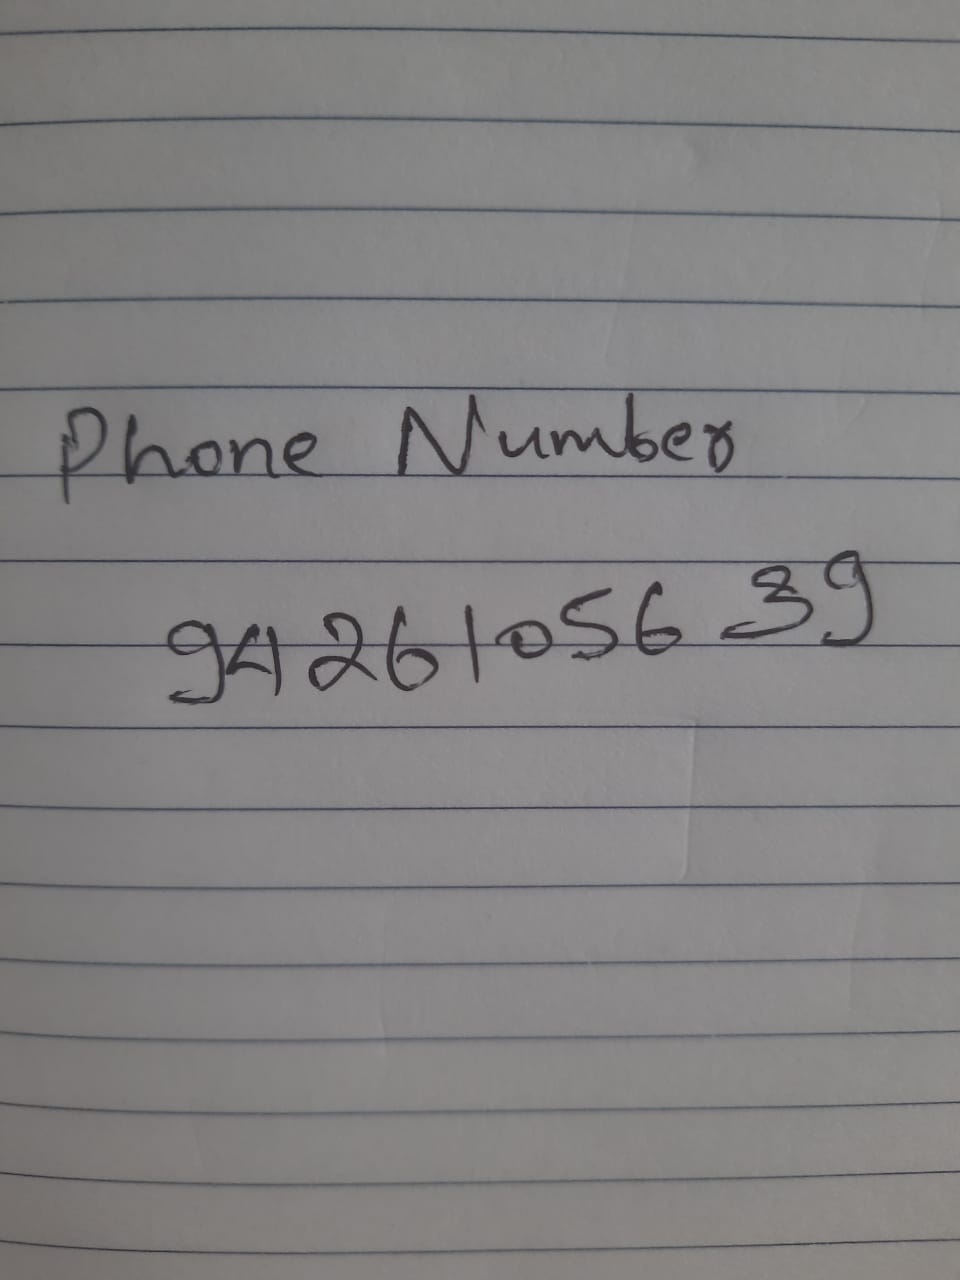 Phone Number
94261056 39